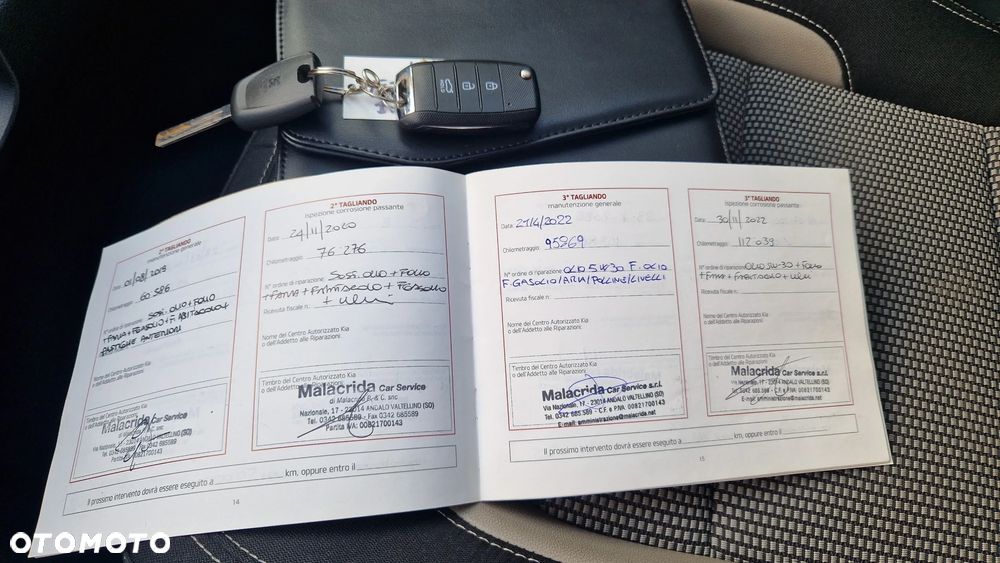 2° TAGLIANDO
manutenzione generale
Data: 01/08/2019
Chilometraggio: 60.586
N° ordine di riparazione: SOST. OLIO + FOLIO
Nome del Centro Autorizzato Kia
o dell'Addetto alle Riparazioni:
Timbro del Centro Autorizzato Kia
o dell'Addetto alle Riparazioni:
Malacrida Car Service
Via Nazionale, 17 - 23014 ANDALO VALTELLINO (SO)
Tel. 0342 685589 - Fax 0342 685589
Partita IVA: 00821700143
2° TAGLIANDO
ispezione corrosione passante
Data: 24/11/2020
Chilometraggio: 76.276
N° ordine di riparazione: SOST. OLIO + FOLIO
Ricevuta fiscale n.:
Nome del Centro Autorizzato Kia
o dell'Addetto alle Riparazioni:
Timbro del Centro Autorizzato Kia
o dell'Addetto alle Riparazioni:
Malacrida Car Service
di Malacrida P. & C. snc
Nazionale, 17 - 23014 ANDALO VALTELLINO (SO)
Tel. 0342 685589 - Fax 0342 685589
Partita IVA: 00821700143
Il prossimo intervento dovrà essere eseguito a km, oppure entro il
14
3° TAGLIANDO
manutenzione generale
Data: 27/4/2022
Chilometraggio: 95869
N° ordine di riparazione: OLIO 5W30 F. OLIO
F. GASOLIO/ARIA/POLLINE/LIVELLI
Ricevuta fiscale n.:
Nome del Centro Autorizzato Kia
o dell'Addetto alle Riparazioni:
Timbro del Centro Autorizzato Kia
o dell'Addetto alle Riparazioni:
Malacrida Car Service s.r.l.
Via Nazionale, 17 - 23014 ANDALO VALTELLINO (SO)
Tel. 0342 685 589 - C.F. e P.IVA: 00821700143
E-mail: amministrazione@malacrida.net
3° TAGLIANDO
ispezione corrosione passante
Data: 30/11/2022
Chilometraggio: 112.039
N° ordine di riparazione: OLIO 5W-30 + FOLIO
Ricevuta fiscale n.:
Nome del Centro Autorizzato Kia
o dell'Addetto alle Riparazioni:
Timbro del Centro Autorizzato Kia
o dell'Addetto alle Riparazioni:
Malacrida Car Service s.r.l.
Via Nazionale, 17 - 23014 ANDALO VALTELLINO (SO)
Tel. 0342 685 589 - C.F. e P.IVA: 00821700143
E-mail: amministrazione@malacrida.net
Il prossimo intervento dovrà essere eseguito a km, oppure entro il
15
OTOMOTO